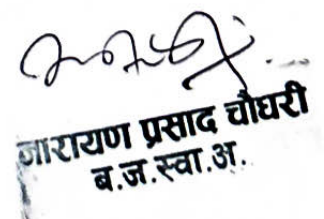 नारायण प्रसाद चौधरी
ब.ज.स्वा.अ.